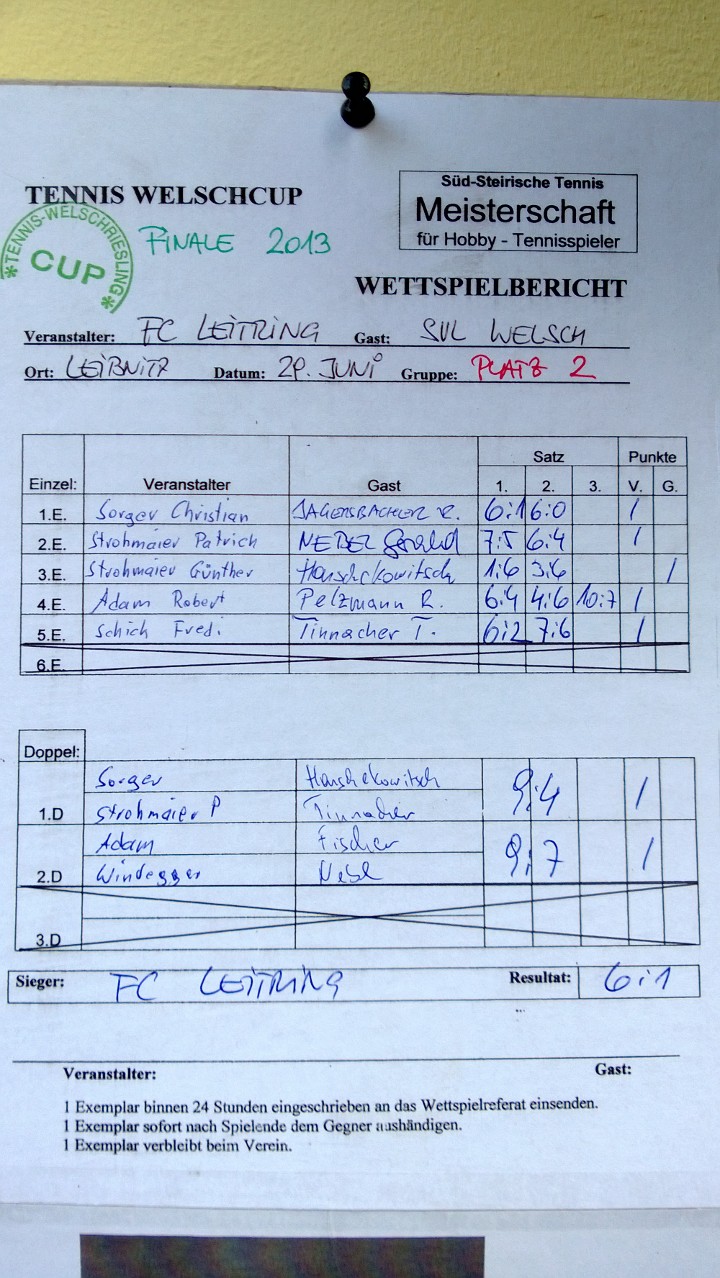 TENNIS WELSCHCUP
Süd-Steirische Tennis
Meisterschaft
für Hobby - Tennisspieler
*TENNIS-WELSCHRIESLING*
CUP
FINALE 2013
WETTSPIELBERICHT
Veranstalter: FC LEITRING Gast: SVL WELSCH
Ort: LEIBNITZ Datum: 29. JUNI Gruppe: PLATZ 2
Satz Punkte
Einzel: Veranstalter Gast 1. 2. 3. V. G.
1.E. Sorger Christian R. 6:1 6:0 1
2.E. Strohmaier Patrich NEBEL Gerald 7:5 6:4 1
3.E. Strohmaier Günther Hanschekowitsch 1:6 3:6 1
4.E. Adam Robert Pelzmann R. 6:4 4:6 10:7 1
5.E. Schich Fredi Tinnacher T. 6:2 7:6 1
6.E.
Doppel:
Sorger Hanschekowitsch 9:4 1
1.D Strohmaier P Tinnacher
Adam Fischer 9:7 1
2.D Windegger Nebel
3.D
Sieger: FC LEITRING Resultat: 6:1
Veranstalter: Gast:
1 Exemplar binnen 24 Stunden eingeschrieben an das Wettspielreferat einsenden.
1 Exemplar sofort nach Spielende dem Gegner aushändigen.
1 Exemplar verbleibt beim Verein.